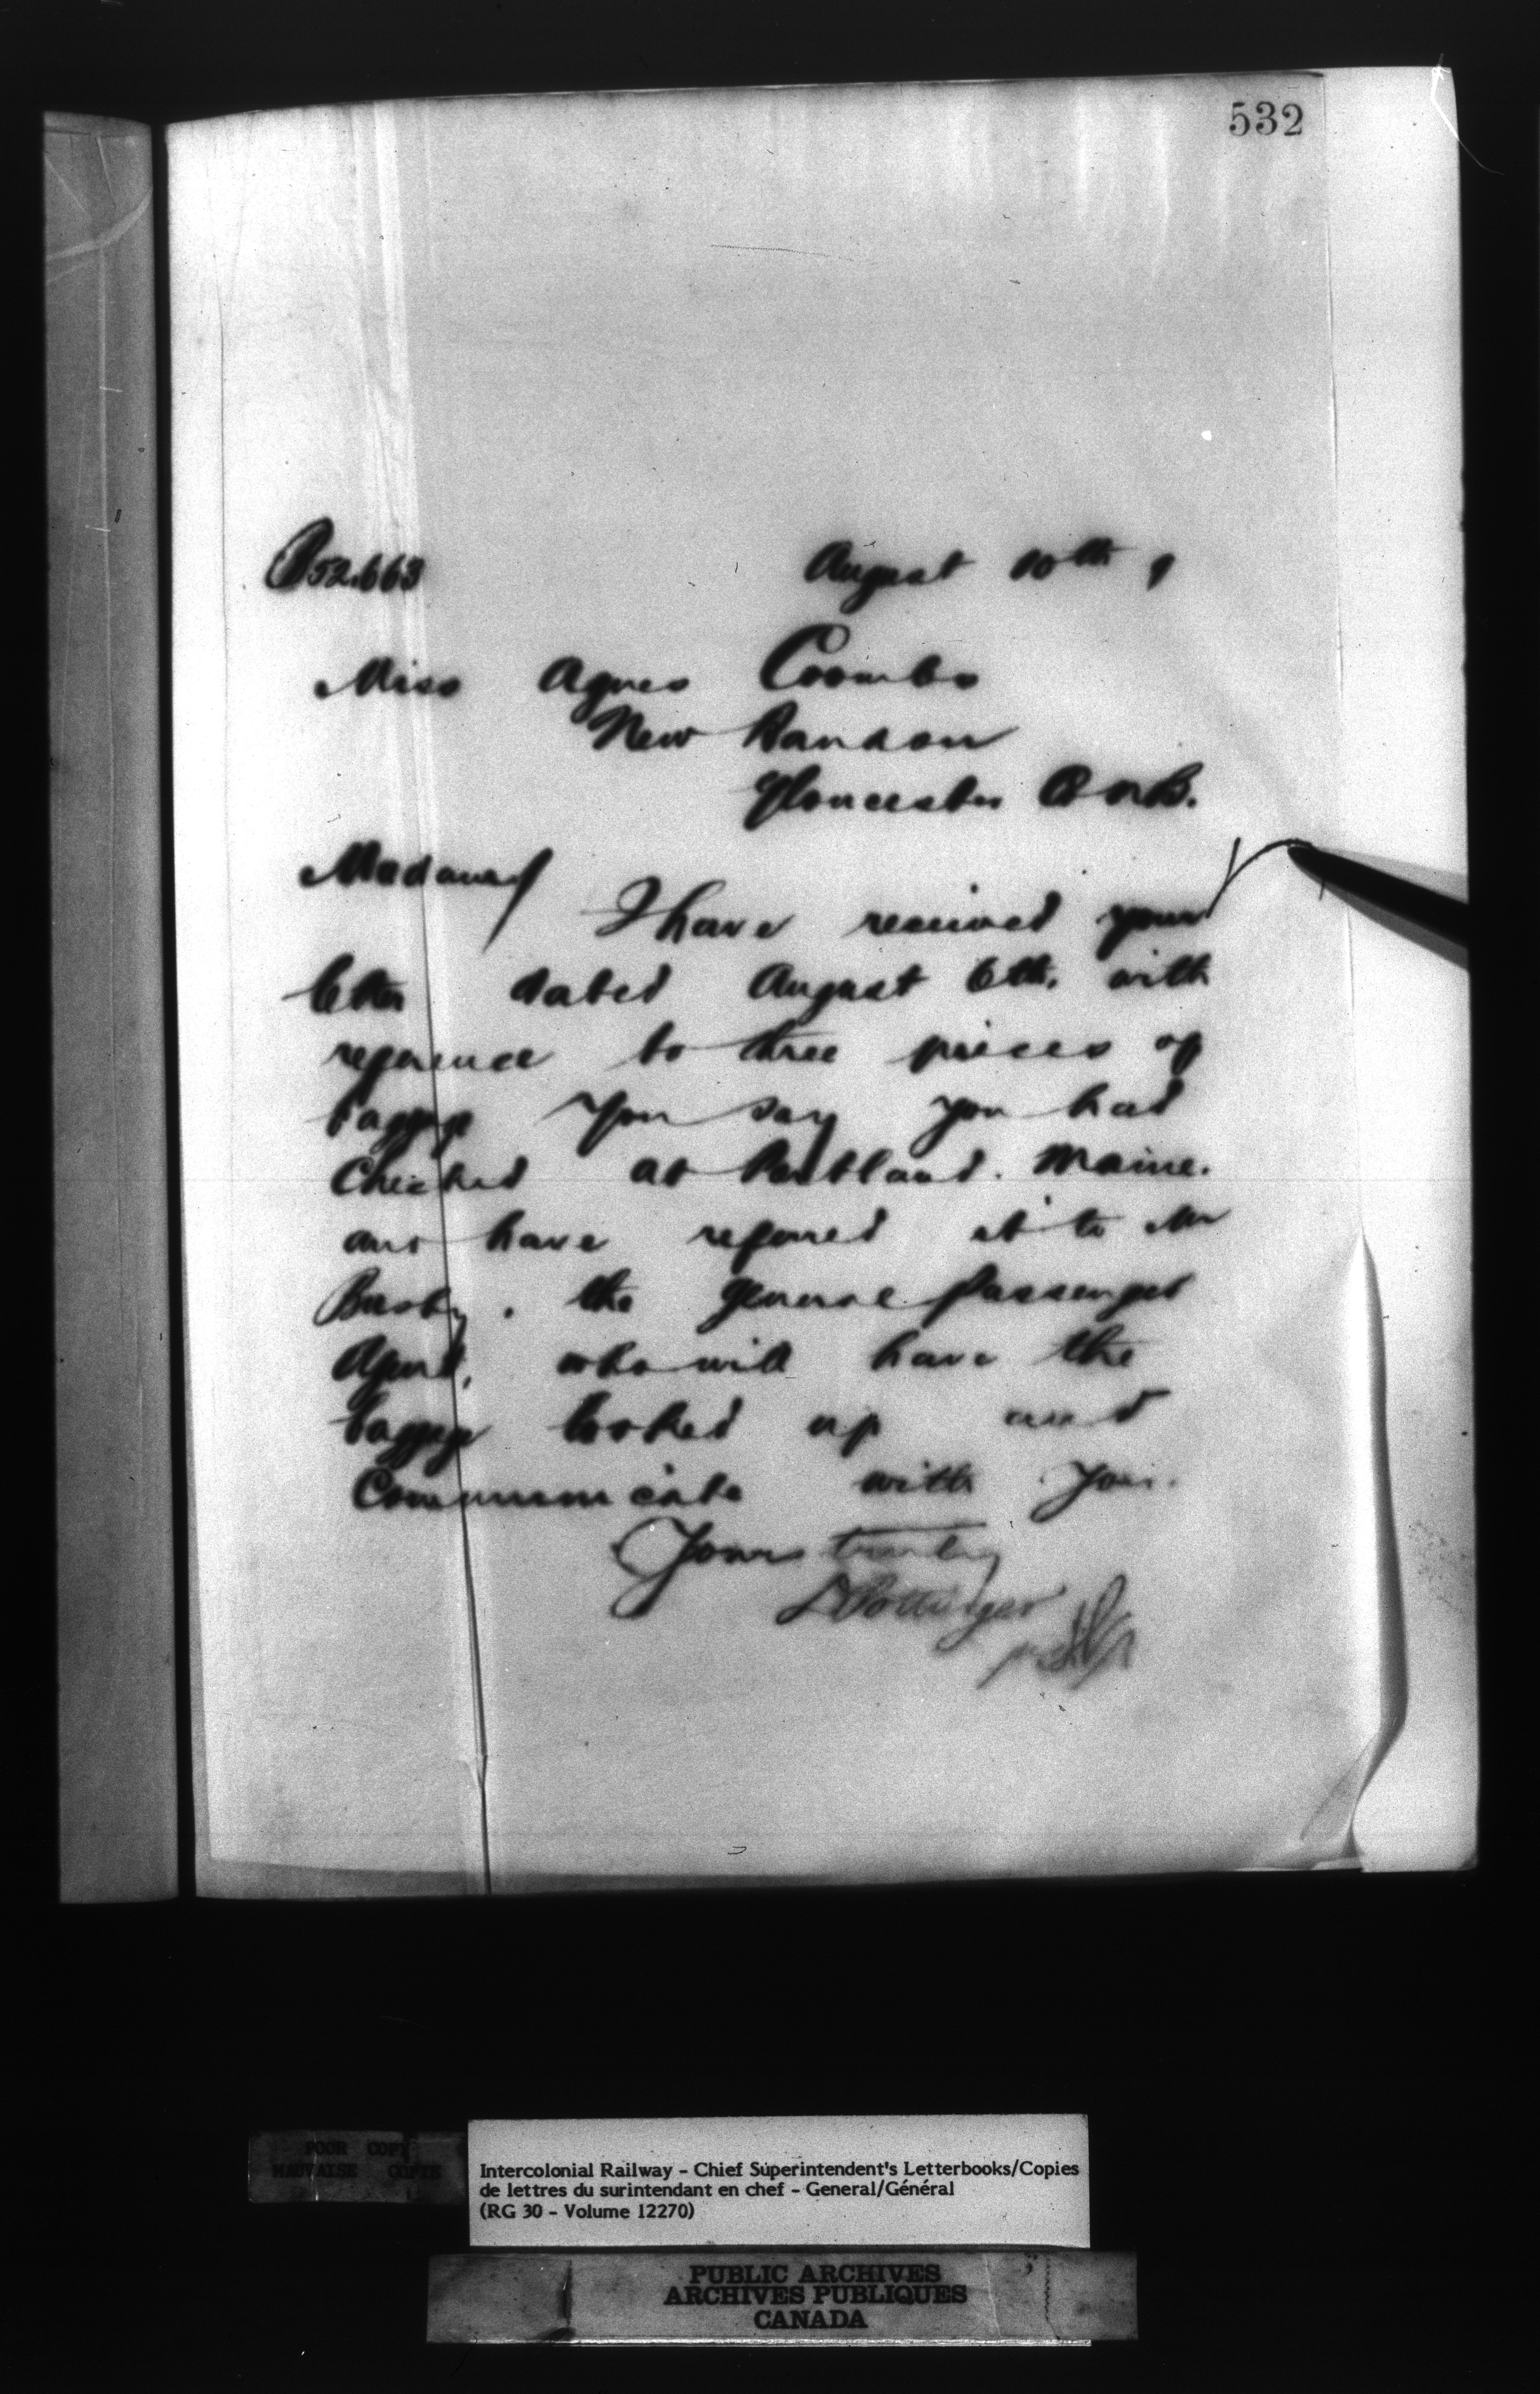 532
52.663 August 10th, 9
Miss Agnes Coombs
New Bandon
Gloucester Co N.B.
Madam/
I have received your
letter dated August 6th. with
reference to three pieces of
baggage you say you had
Checked at Portland. Maine.
and have referred it to Mr
Busby. the General Passenger
Agent, who will have the
baggage looked up and
Communicate with you.
Yours truly
D Pottinger
POOR COPY
MAUVAISE COPIE
Intercolonial Railway - Chief Superintendent's Letterbooks/Copies
de lettres du surintendant en chef - General/Général
(RG 30 - Volume 12270)
PUBLIC ARCHIVES
ARCHIVES PUBLIQUES
CANADA